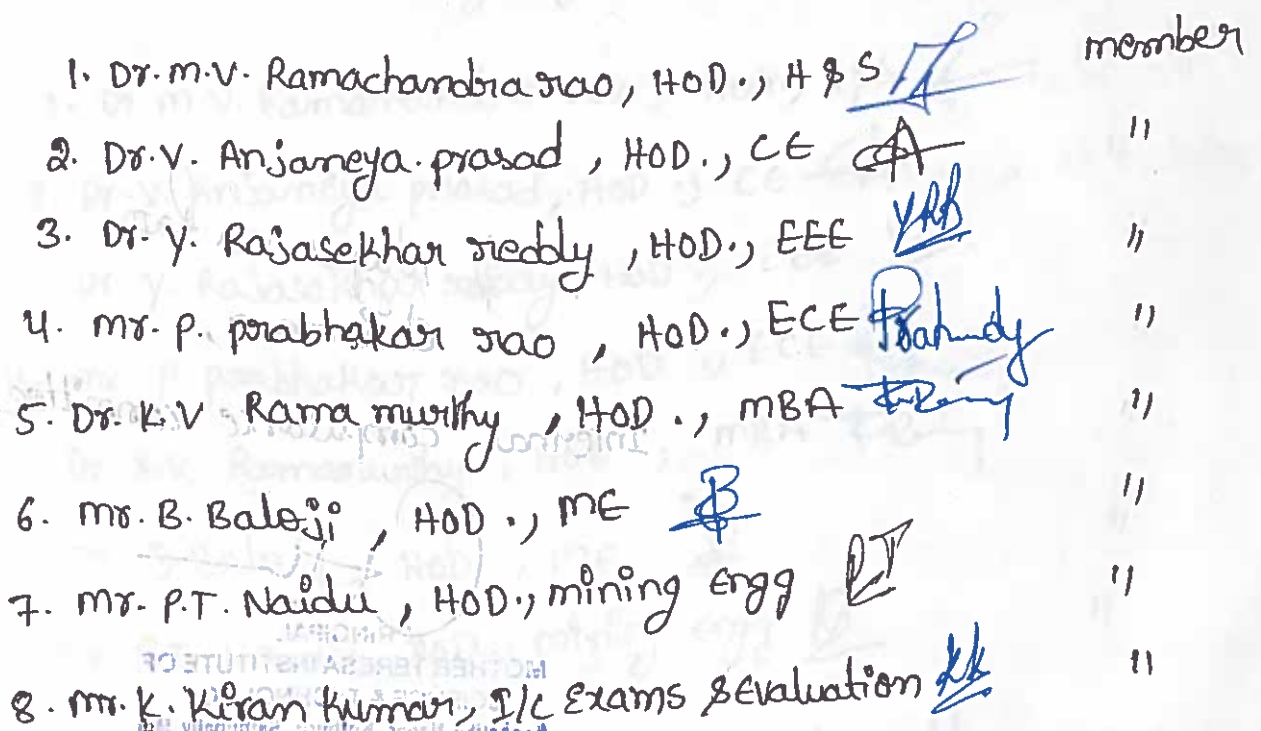 1. Dr. M.V. Ramachandra rao, HOD., H & S member
2. Dr. V. Anjaneya. prasad, HOD., CE "
3. Dr. Y. Rajasekhar reddy, HOD., EEE YRR "
4. Mr. P. prabhakar rao, HOD., ECE "
5. Dr. K.V Rama murthy, HOD., MBA "
6. Mr. B. Balaji, HOD., ME B "
7. Mr. P.T. Naidu, HOD., mining engg "
8. Mr. K. Kiran Kumar, I/c Exams & Evaluation KK "